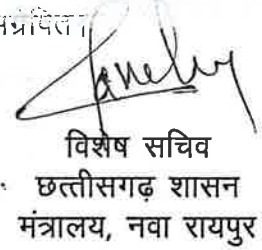 विशेष सचिव
छत्तीसगढ़ शासन
मंत्रालय, नवा रायपुर